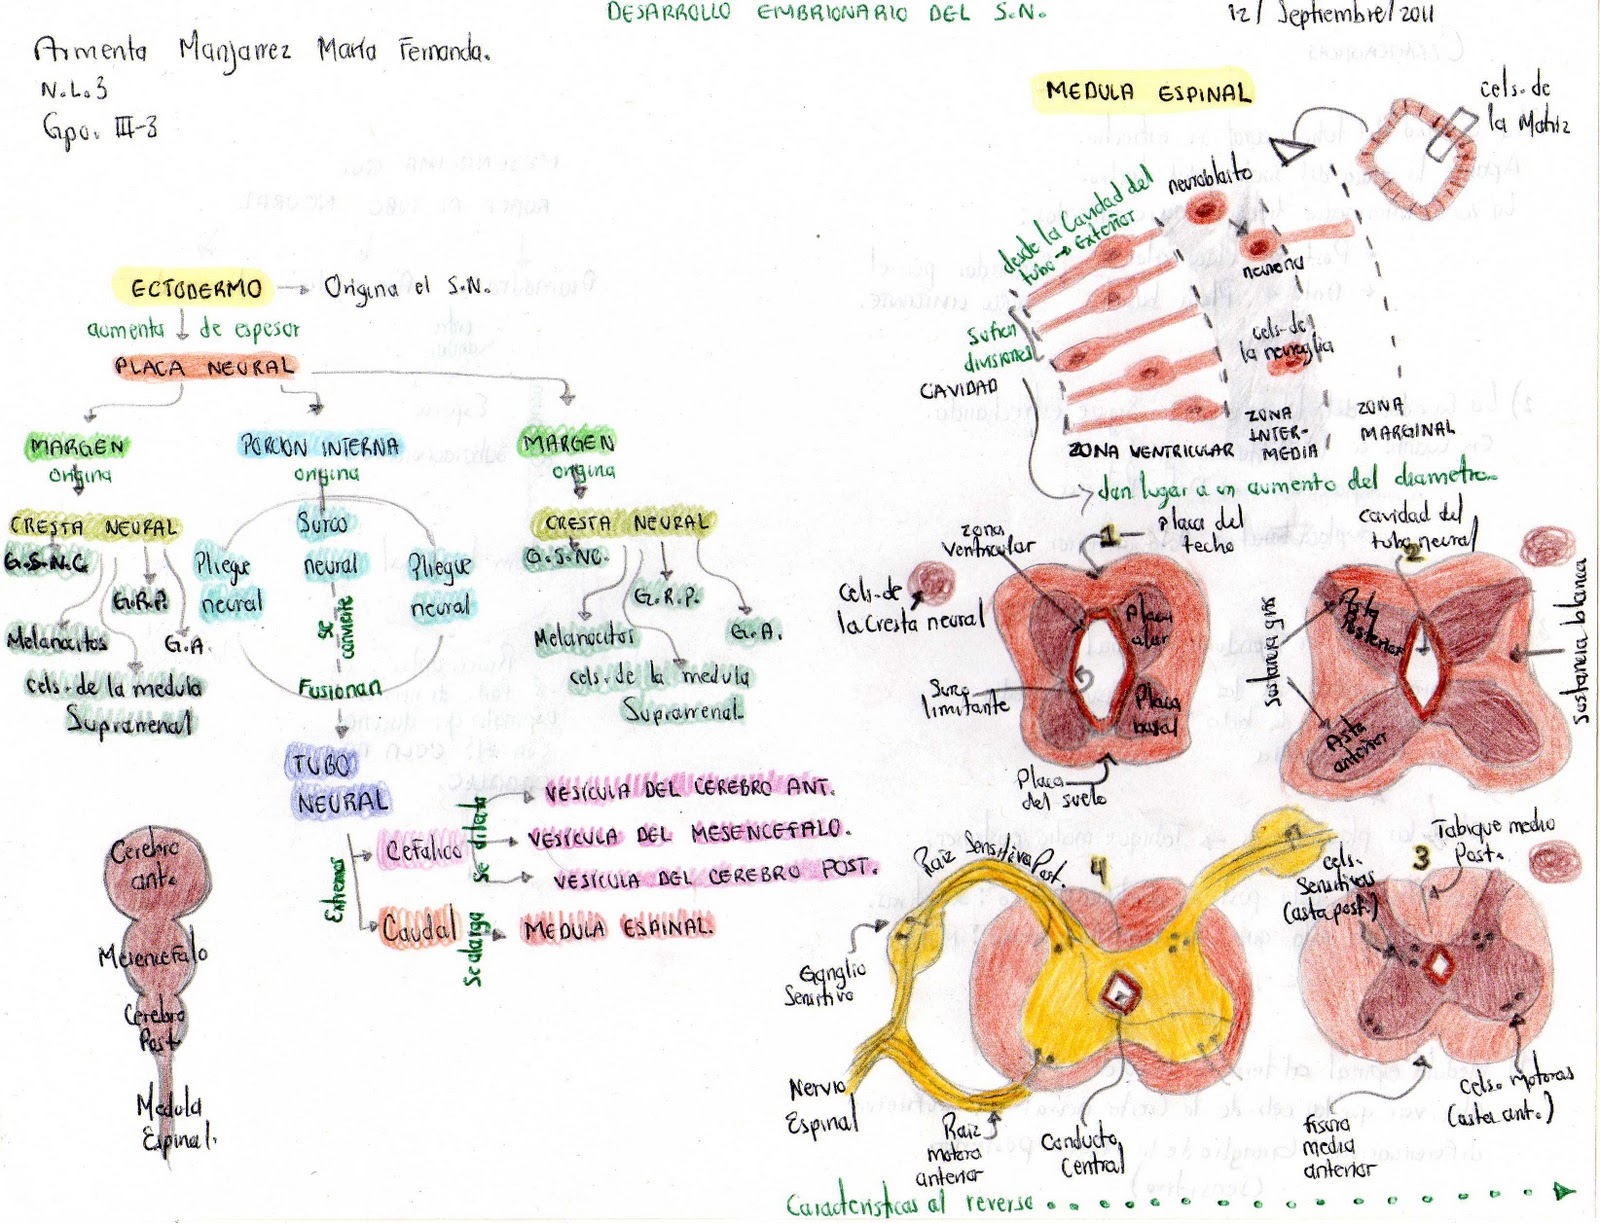 DESARROLLO EMBRIONARIO DEL S.N.
12/ Septiembre/2011
Armenta Manjarrez María Fernanda.
N.L.3
Gpo. III-3
ECTODERMO → Origina el S.N.
aumenta de espesor
PLACA NEURAL
MARGEN
origina
CRESTA NEURAL
G.S.N.C.
G.R.P.
Melanocitos
G.A.
cels. de la medula
Suprarrenal
PORCION INTERNA
origina
Surco
neural
Pliegue
neural
Pliegue
neural
se
convierte
Fusionan
MARGEN
origina
CRESTA NEURAL
G.S.NC.
G.R.P.
Melanocitos
G.A.
cels. de la medula
Suprarrenal
TUBO
NEURAL
Extremos
Cefálico
Se dilata
VESÍCULA DEL CEREBRO ANT.
VESÍCULA DEL MESENCEFALO.
VESÍCULA DEL CEREBRO POST.
Caudal
Se alarga
MEDULA ESPINAL.
Cerebro
ant.
Mesencefalo
Cerebro
Post.
Medula
Espinal.
MEDULA ESPINAL
cels. de
la Matriz
desde la Cavidad del
tubo → Exterior
neuroblasto
neurona
Sufren
divisiones
cels. de
la neuroglia
CAVIDAD
ZONA VENTRICULAR
ZONA
INTER-
MEDIA
ZONA
MARGINAL
dan lugar a un aumento del diametro.
1
zona
Ventricular
placa del
techo
Cels. de
la Cresta neural
Placa
alar
Surco
limitante
Placa
basal
Placa
del suelo
2
cavidad del
tubo neural
Sustancia gris
Asta
Posterior
Asta
anterior
Sustancia blanca
3
Tabique medio
Post.
cels.
Sensitivas
(asta post.)
fisura
media
anterior
Cels. motoras
(asta ant.)
4
Raiz Sensitiva Post.
Ganglio
Sensitivo
Nervio
Espinal
Raiz
motora
anterior
Conducto
Central
Caracteristicas al reverso